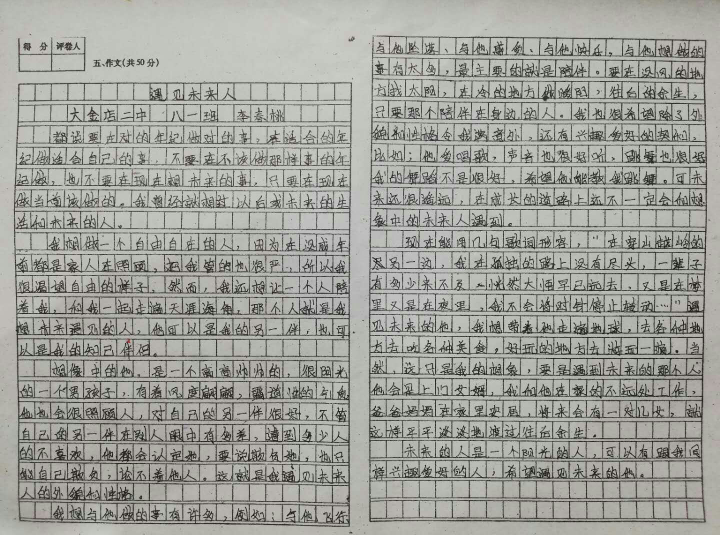 得 分 评卷人
五、作文(共50分)
遇见未来人
大金店二中 八一班 李春桃
都说要在对的年纪做对的事,在适合的年
纪做适合自己的事,不要在不该做那样事的年
纪做,也不要在现在想未来的事,只要在现在
做当前该做的。我曾经就想过以后我未来的生
活和未来的人。
我想做一个自由自在的人,因为在没成年
前都是家人在照顾,把我管的也很严,所以我
很渴望自由的样子。然而,我还想让一个人陪
着我,和我一起走遍天涯海角,那个人就是我
想未来遇见的人,他可以是我的另一伴,也可
以是我的知己伴侣。
想像中的他,是一个高高帅帅的,很阳光
的一个男孩子,有着风度翩翩,
他也会很照顾人,对自己的另一伴很好,不管
自己的另一伴在别人眼中有多差,遭到多少人
的不喜欢,他都会认定她,要说欺负她,也只
能自己欺负,论不着他人。这就是我遇见未来
人的外貌和性格。
我想与他做的事有许多,例如:与他飞行
与他坐谈、与他感伤、与他快乐,与他想做的
事有太多,最主要的就是陪伴。要在没风的地
方找太阳,在冷的地方我暖阳,往后的余生,
只要那个陪伴在身边的人。我也很希望除了外
貌和性格令我满意外,还有兴趣爱好的契机,
比如:他爱唱歌,声音也很好听,跳舞也很好
我的舞蹈不是很好,希望他能教我跳舞。可未
来还很遥远,在成长的道路上还不一定会和想
象中的未来人遇到。
现在能用几句歌词形容,“在穿山越岭的
尽另一边,我在孤独的路上没有尽头,一辈子
有多少来不及,恍然大悟早已远去,又是在梦
里又是在夜里,我不会将时针停止转动…”遇
见未来的他,我想带着他走遍地球,去各种地
方去吃各种美食,好玩的地方去游玩一遍。当
然,这只是我的想象,要是遇到未来的那个人
他会是上门女婿,我和他在家的不远处工作,
爸爸妈妈在家里安居,将来会有一对儿女,就
这样平平淡淡地渡过往后余生。
未来的人是一个阳光的人,可以有跟我同
样兴趣爱好的人;希望遇见未来的他。